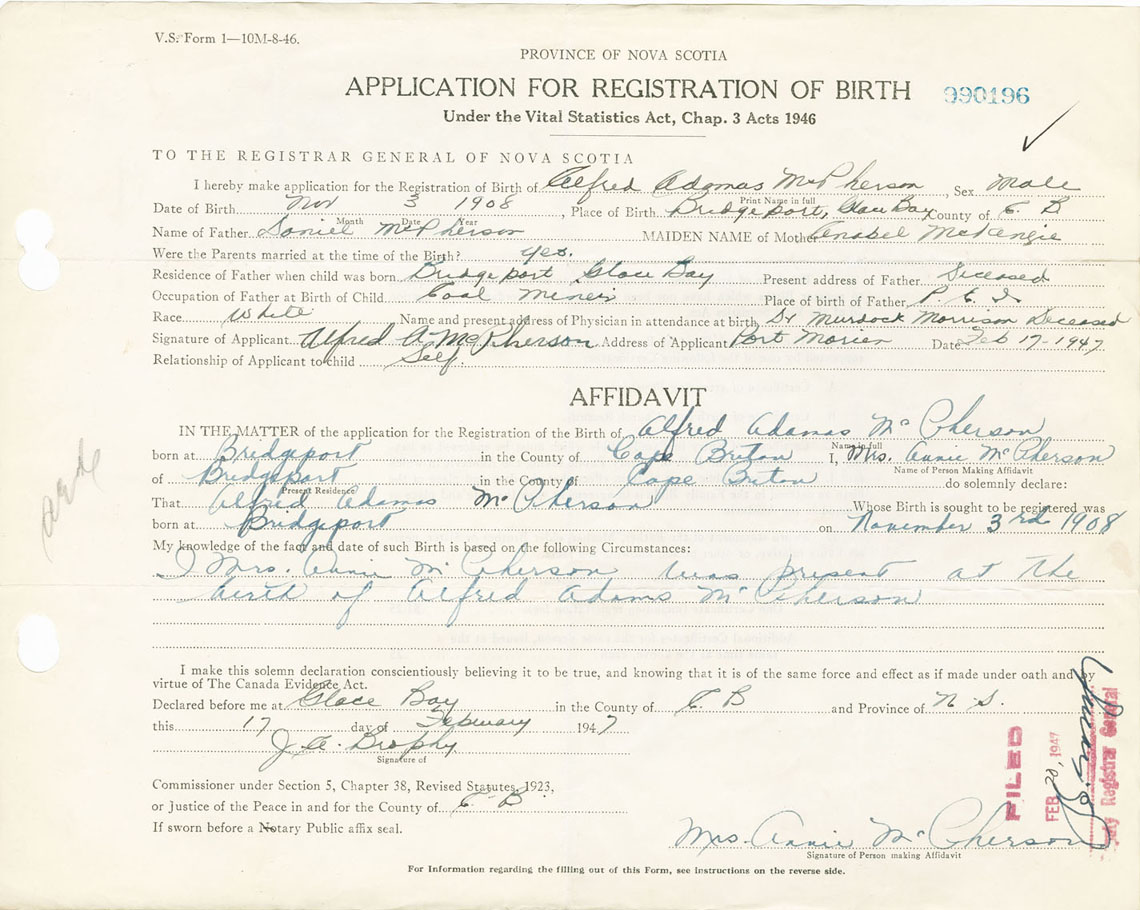 V.S. Form 1—10M-8-46.
PROVINCE OF NOVA SCOTIA
APPLICATION FOR REGISTRATION OF BIRTH 990196
Under the Vital Statistics Act, Chap. 3 Acts 1946
TO THE REGISTRAR GENERAL OF NOVA SCOTIA
I hereby make application for the Registration of Birth of Alfred Adamas McPherson, Sex Male
Print Name in full
Date of Birth Nov 3 1908, Place of Birth Bridgeport, Glace Bay County of C B
Month Date Year
Name of Father Daniel McPherson MAIDEN NAME of Mother Anabel McKenzie
Were the Parents married at the time of the Birth? Yes.
Residence of Father when child was born Bridgeport Glace Bay Present address of Father Deceased
Occupation of Father at Birth of Child Coal Miner Place of birth of Father P. E. I
Race White Name and present address of Physician in attendance at birth Dr Murdock Morrison Deceased
Signature of Applicant Alfred A. McPherson Address of Applicant Port Morien Date Feb 17-1947
Relationship of Applicant to child Self.
AFFIDAVIT
IN THE MATTER of the application for the Registration of the Birth of Alfred Adamas McPherson
Name in full
born at Bridgeport in the County of Cape Briton I, Mrs. Annie McPherson
Name of Person Making Affidavit
of Bridgeport in the County of Cape Briton do solemnly declare:
Present Residence
That Alfred Adamas McPherson Whose Birth is sought to be registered was
born at Bridgeport on November 3rd 1908
My knowledge of the fact and date of such Birth is based on the following Circumstances:
I Mrs. Annie McPherson was present at the
birth of Alfred Adams McPherson
I make this solemn declaration conscientiously believing it to be true, and knowing that it is of the same force and effect as if made under oath and by
virtue of The Canada Evidence Act.
Declared before me at Glace Bay in the County of C B and Province of N S.
this 17 day of February 1947
J. A. Brophy
Signature of
Commissioner under Section 5, Chapter 38, Revised Statutes, 1923,
or justice of the Peace in and for the County of C B
If sworn before a Notary Public affix seal.
FILED
FEB 20, 1947
Registrar General
Mrs. Annie McPherson
Signature of Person making Affidavit
For Information regarding the filling out of this Form, see instructions on the reverse side.